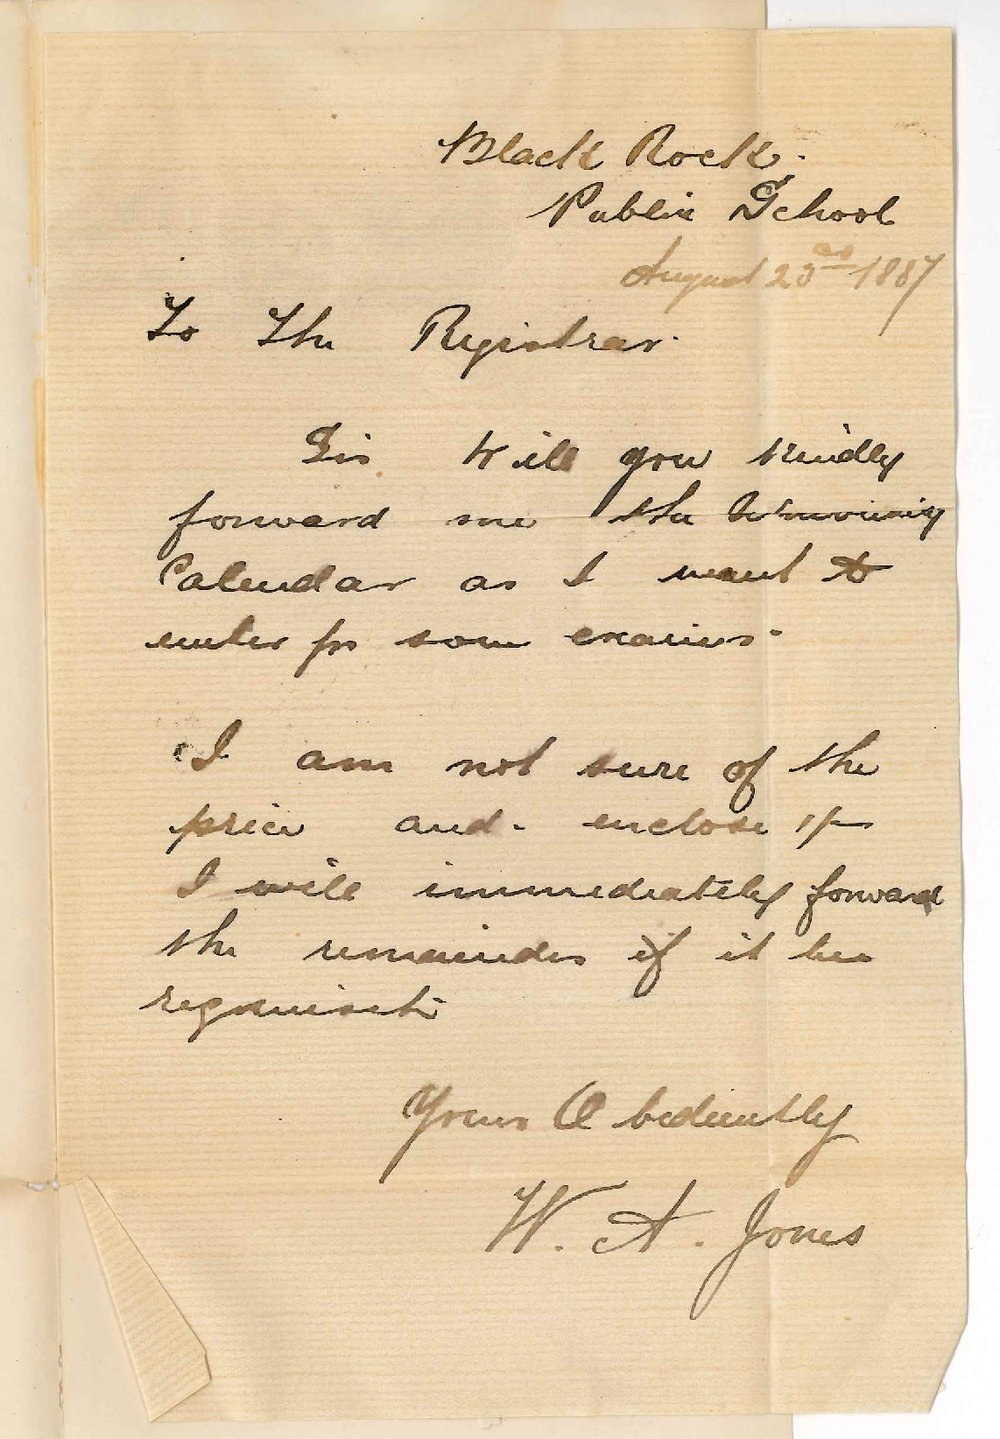 Black Rock.
Public School
August 23rd 1887
To The Registrar.
Sir Will you kindly
forward me the University
Calendar as I want to
enter for some exams.
I am not sure of the
price and enclose 1/-
I will immediately forward
the remainder if it be
requisite
Yours Obediently
W. A. Jones